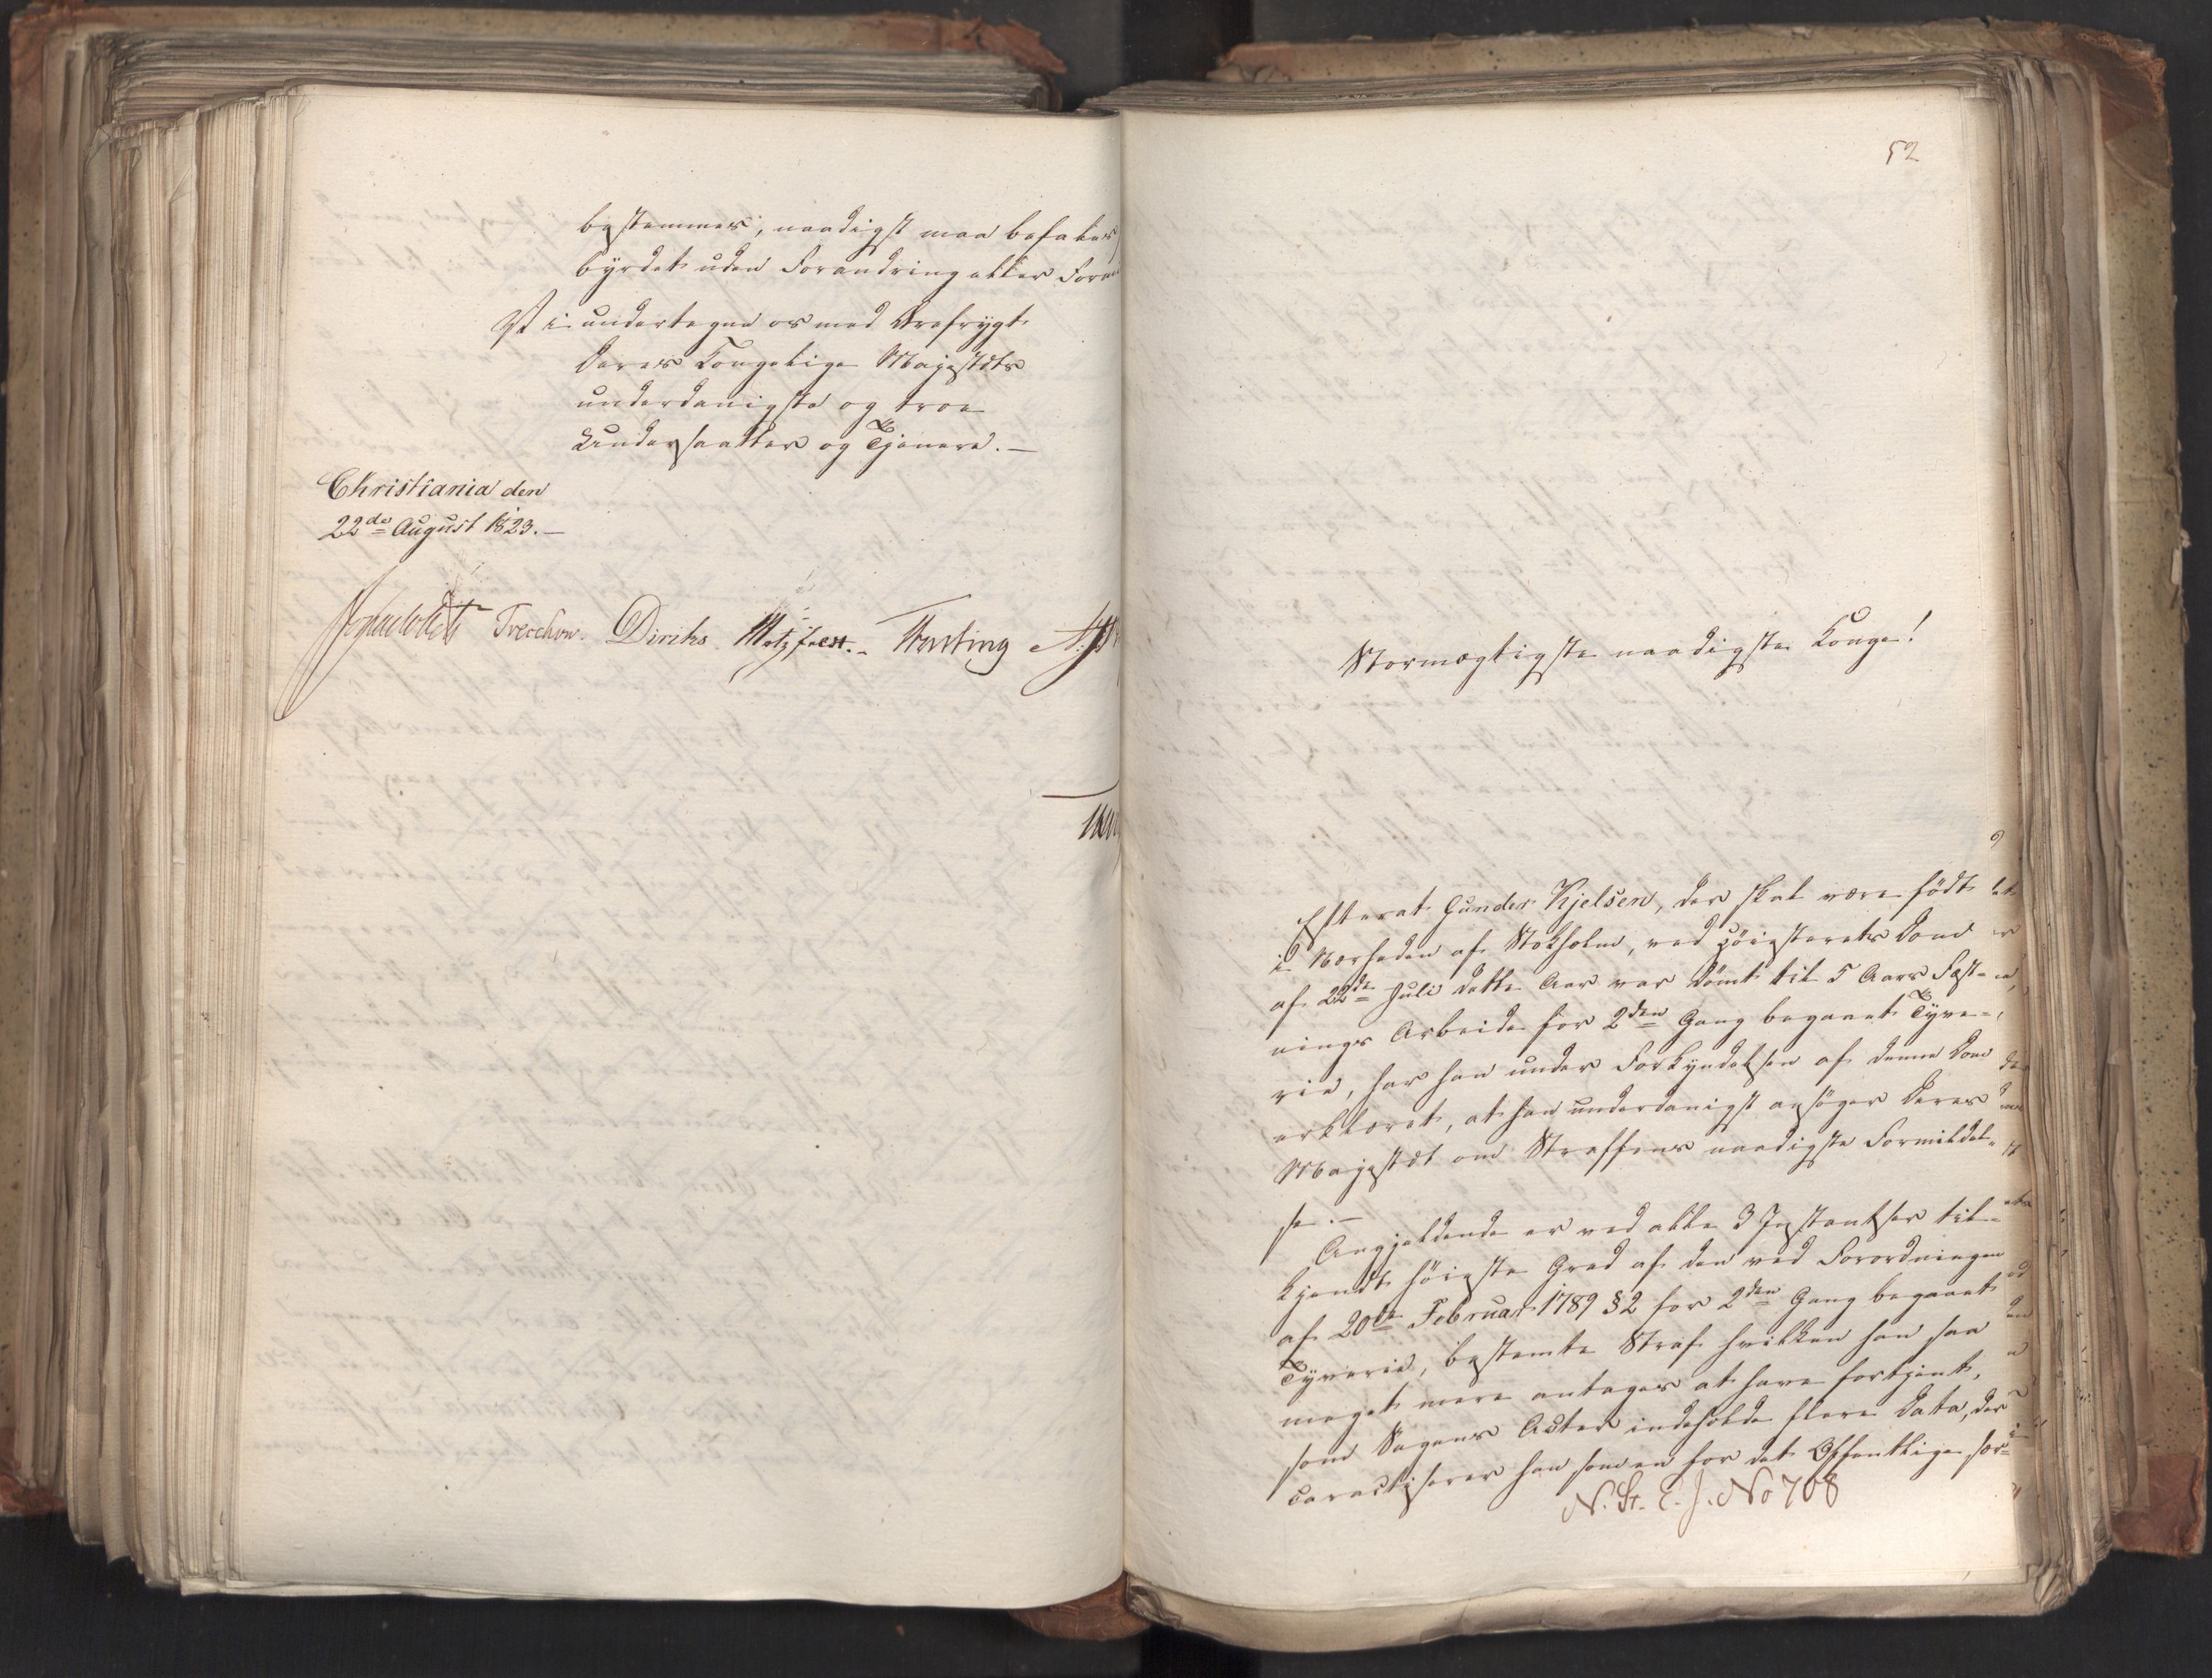 bestemmes, naadigst maa befales
byrdet uden Forandring eller Form
Vi undertegne os med Ærefrygt
Deres Kongelige Majestæts
underdanigste og troe
Undersaatter og Tjenere. —
Christiania den
22de August 1823. —
Treschow. Diriks. Motzfeldt. Fasting
52
Stormægtigste naadigste Konge!
Efterat Gunder Kjelsen, der skal være födt
i Nærheden af Stokholm, ved Höiesterets Dom
af 22de Juli dette Aar var dömt til 5 Aars Fæst-
nings Arbeide for 2den Gang begaaet Tyve-
rie, har han under Forkyndelsen af denne Dom
erklæret, at han underdanigst ansöger Deres
Majestæt om Straffens naadigste Formildel-
se. —
Angjeldende er ved alle 3 Instantser til-
kjendt höieste Grad af den ved Forordningen
af 20de Februar 1789 § 2 for 2den Gang begaaet
Tyverie, bestemte Straf hvilken han saa
meget mere antages at have fortjent,
som Sagens Acter indeholde flere Data, der
caracteriserer han som en for det Offentlige sær-
N. St. E. J. No 708